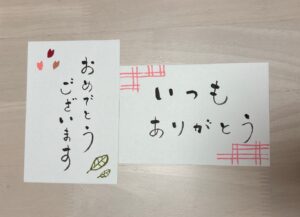 おめでとう
ございます
いつも
ありがとう